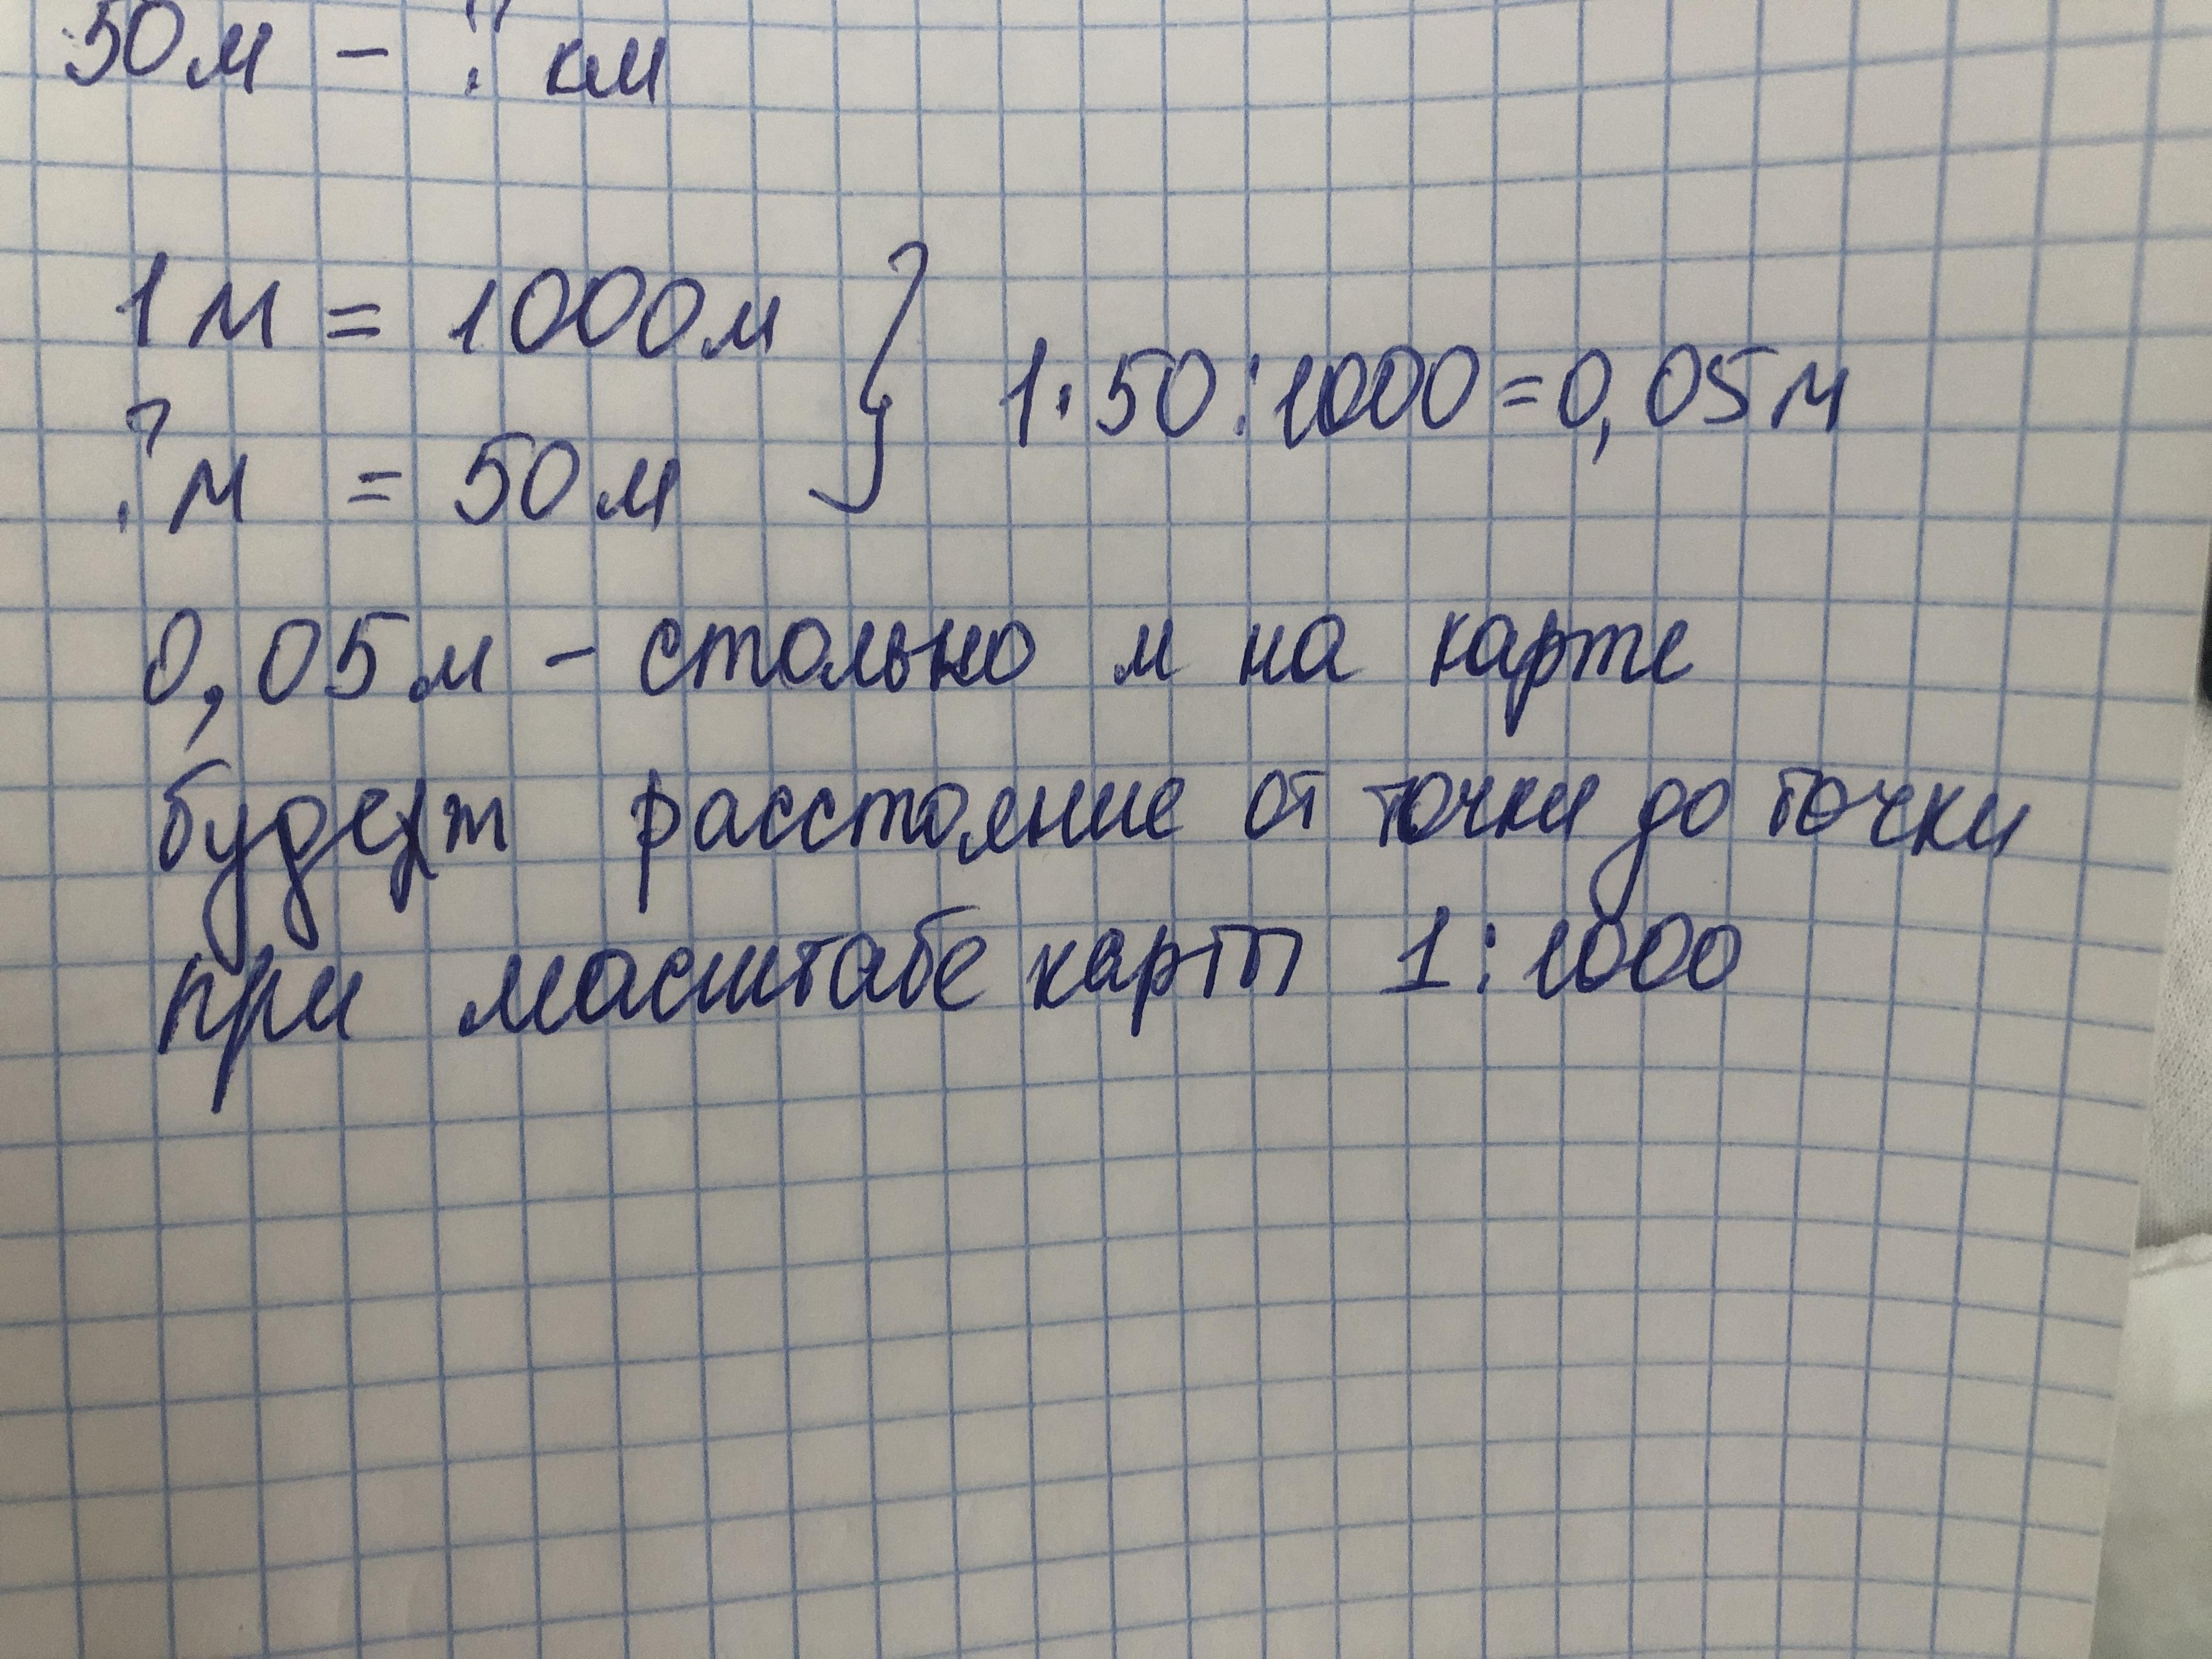 50м - ? км
1м = 1000м
?м = 50м
} 1·50:1000=0,05м
0,05м - столько м на карте
будет расстояние от точки до точки
при масштабе карты 1:1000